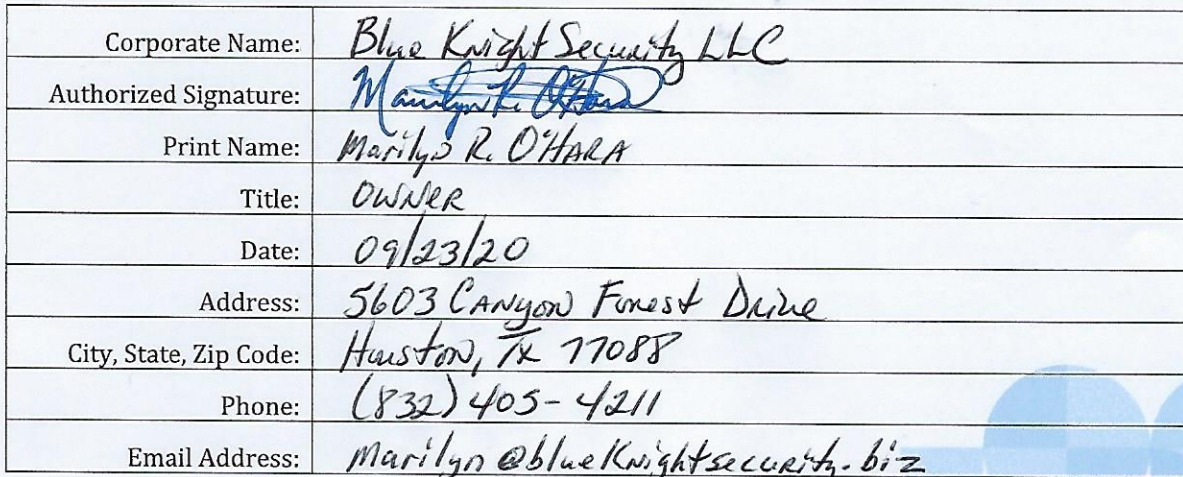 Corporate Name: Blue Knight Security LLC
Authorized Signature: Marilyn R. O'Hara
Print Name: Marilyn R. O'HARA
Title: OWNER
Date: 09/23/20
Address: 5603 CANYON Forest Drive
City, State, Zip Code: Houston, TX 77088
Phone: (832) 405-4211
Email Address: marilyn@blueKnightsecurity.biz